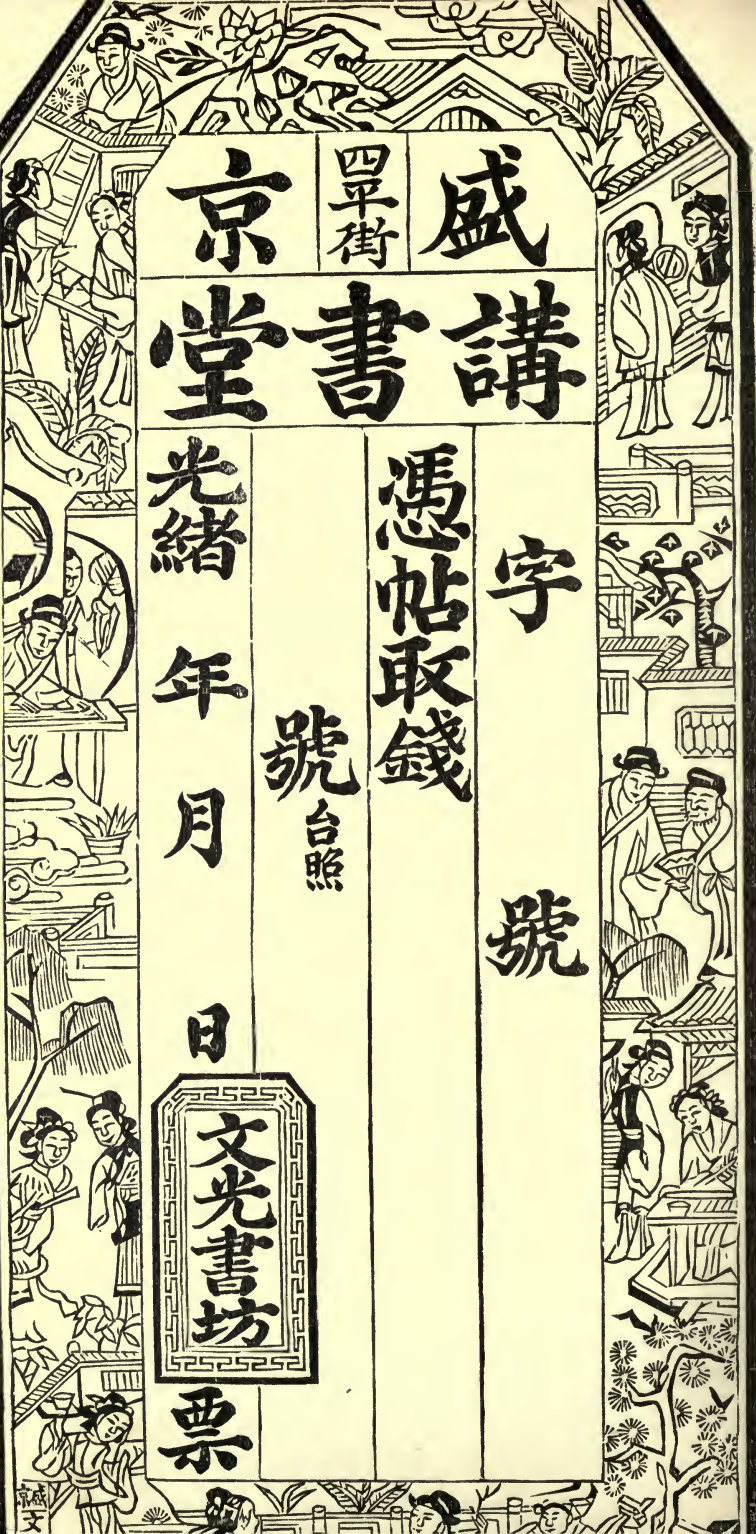 盛京
四平街
講書堂
字 號
憑帖取錢
號 台照
光緒 年 月 日
文光書坊
票
盛京文